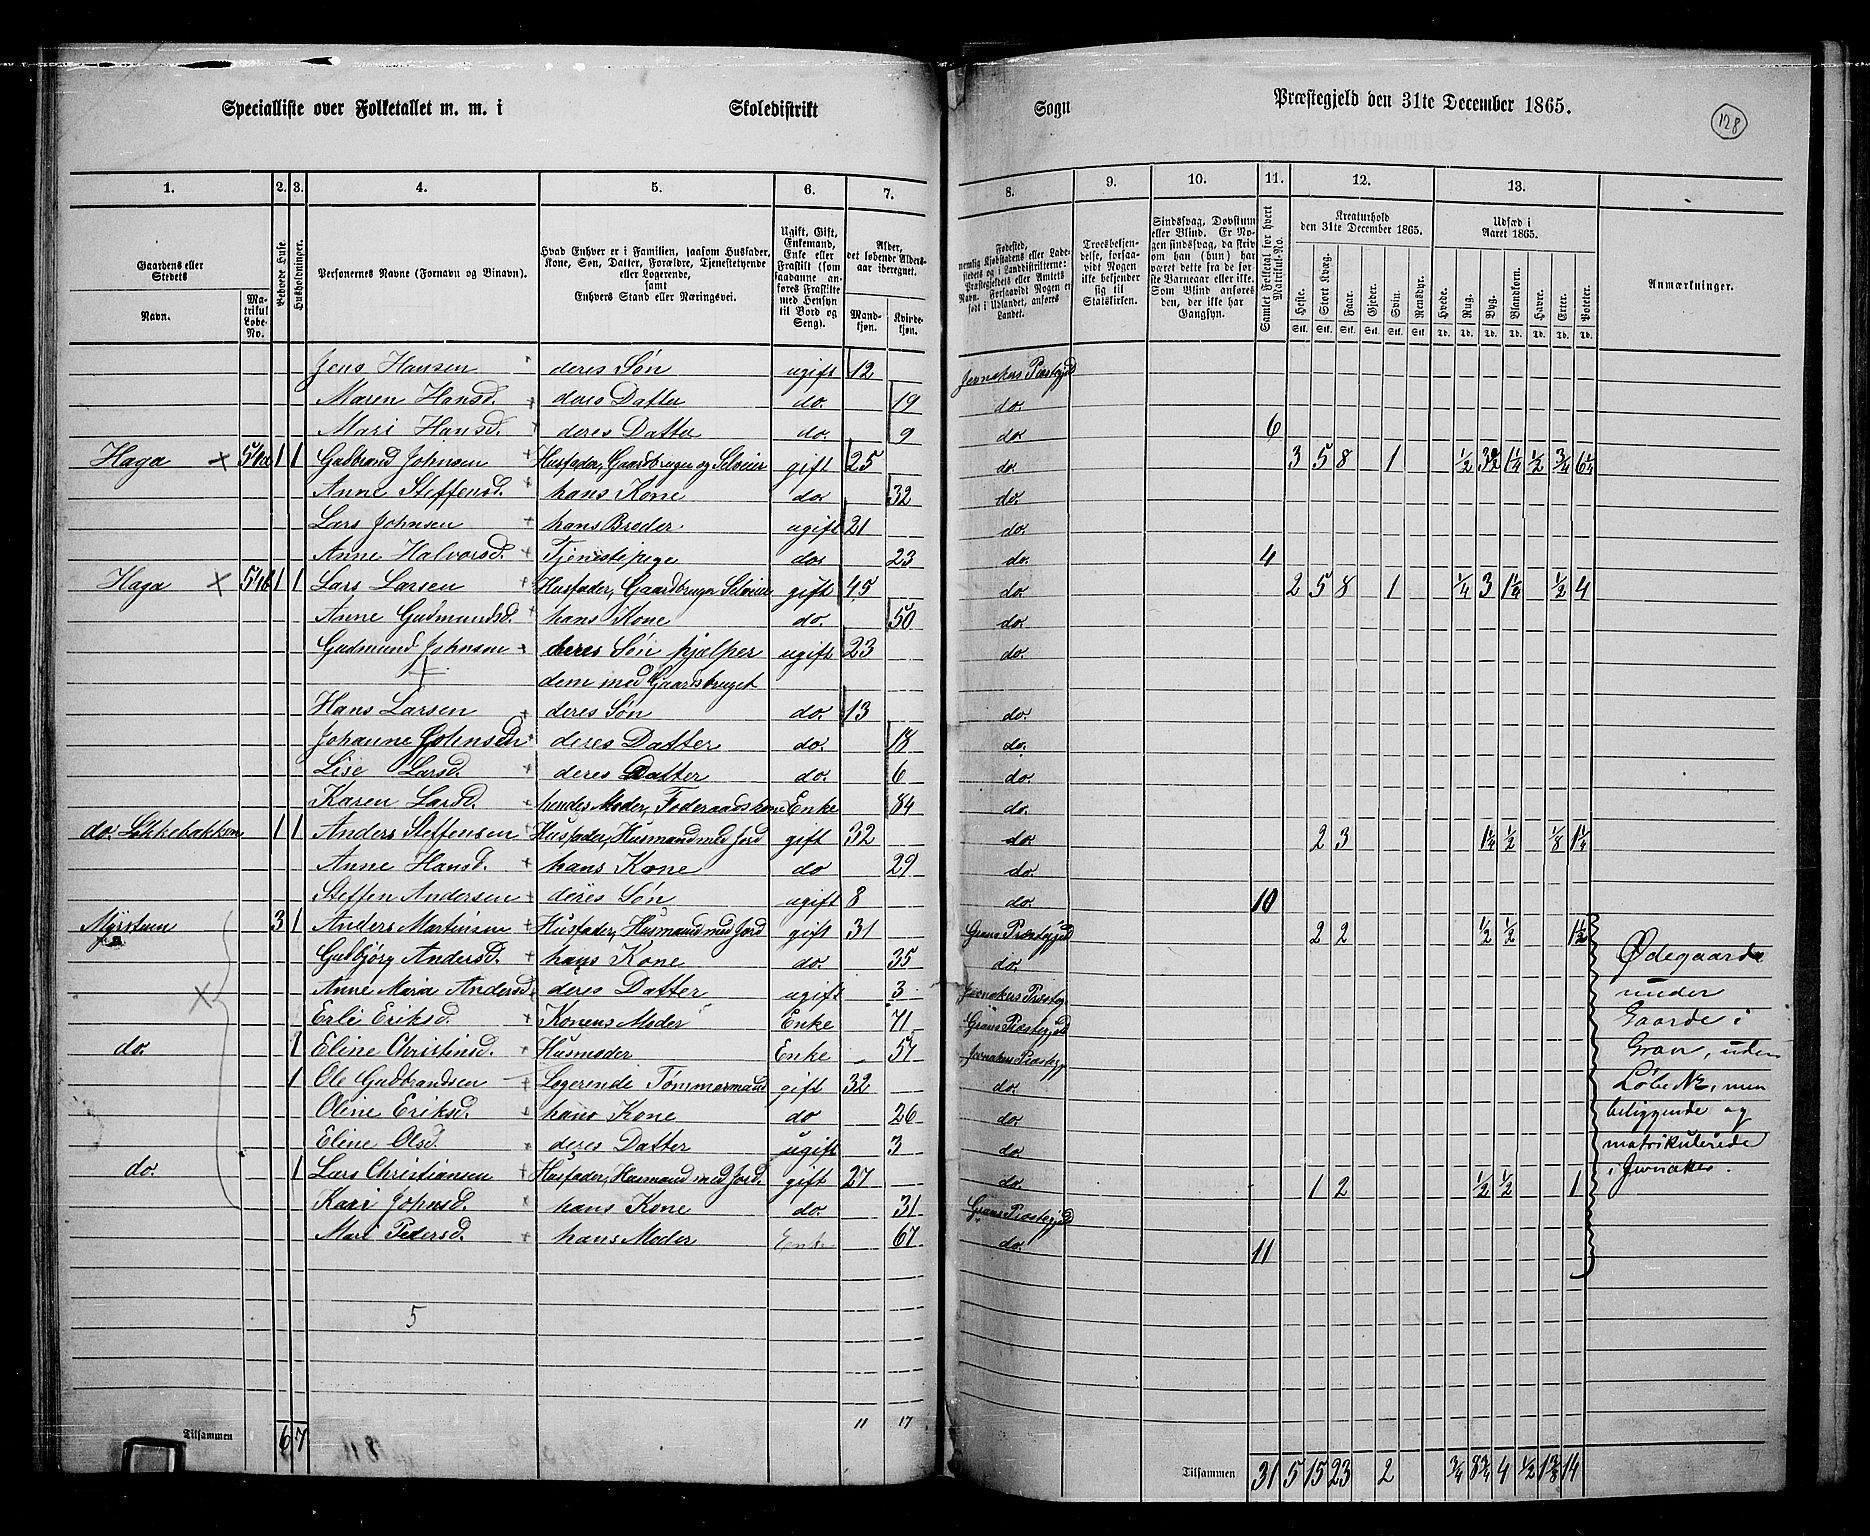 Specialliste over Folketallet m. m. i Skoledistrikt Sogn Præstegjeld den 31te December 1865.
128
1. 2. 3. 4. 5. 6. 7. 8. 9. 10. 11. 12. 13.
Gaardens eller Stedets
Navn.
Matrikul Løbe-No.
Beboede Huse.
Husholdninger.
Personernes Navne (Fornavn og Binavn).
Hvad Enhver er i Familien, saasom Husfader, Kone, Søn, Datter, Forældre, Tjenestetyende eller Logerende, samt Enhvers Stand eller Næringsvei.
Ugift, Gift, Enkemand, Enke eller Fraskilt (som saadanne anføres Fraskilte med Hensyn til Bord og Seng).
Alder, det løbende Aldersaar iberegnet.
Mandkjøn. Kvindekjøn.
Fødested, nemlig Kjøbstadens eller Ladestedets og i Landdistrikterne: Præstegjeldets eller Amtets Navn. Forsaavidt Nogen er født i Udlandet, anføres Landet.
Troesbekjendelse, forsaavidt Nogen ikke bekjender sig til Statskirken.
Sindssvag, Døvstum eller Blind. Er Nogen sindssvag, da skrives om han (hun) har været dette fra de første Barneaar eller ikke. Som Blind anføres den, der ikke har Gangsyn.
Samlet Folketal for hvert Matrikul-No.
Kreaturhold den 31te December 1865.
Heste. Stort Kvæg. Faar. Gjeder. Svin. Rensdyr.
Udsæd i Aaret 1865.
Hvede. Rug. Byg. Blandkorn. Havre. Erter. Poteter.
Anmærkninger.
Jens Hansen deres Søn ugift 12 Jevnakers Præstegjd
Maren Hansd. deres Datter do. 19 do.
Mari Hansd. deres Datter do. 9 do. 6
Haga 54a 1 1 Gudbrand Johnsen Husfader, Gaardbruger og Selveier gift 25 do. 3 5 8 1 1/2 3 1/2 1 1/4 1/2 3/4 6 1/4
Anne Steffensd. hans Kone do. 32 do.
Lars Johnsen hans Broder ugift 21 do.
Anne Halvorsd. Tjenestepige do. 23 do. 4
Haga 54b 1 1 Lars Larsen Husfader, Gaardbruger Selveier gift 45 do. 2 5 8 1 1/4 3 1 1/4 1/2 4
Anne Gudmundsd. hans Kone do. 50 do.
Gudmund Johnsen deres Søn hjelper ugift 23 do.
dem med Gaardsbruget
Hans Larsen deres Søn do. 13 do.
Johanne Johnsd. deres Datter do. 18 do.
Lise Larsd. deres Datter do. 6 do.
Karen Larsd. hendes Moder, Føderaadskone Enke 84 do.
do. Løkkebakken 1 1 Anders Steffensen Husfader, Husmand med Jord gift 32 do. 2 3 1 1/4 1/2 1/8 1 1/4
Anne Hansd. hans Kone do 29 do.
Steffen Andersen deres Søn ugift 8 do. 10
Myrstuen 3 1 Anders Martinsen Husfader, Husmand med Jord gift 31 Grans Præstegjd 2 2 1/2 1/2 1 1/2
Gudbjørg Andersd. hans Kone do. 35 do. Ødegaarde
Anne Maria Andersd deres Datter ugift 3 Jevnakers Præsteg. under
Erli Eriksd. Konens Moder Enke 71 Grans Præstegjd Gaarde i
do. 1 Eline Christinsd. Husmoder Enke 57 Jevnakers Præstegj Gran, uden
1 Ole Gudbrandsen Logerende Tømmermand gift 32 do. Løbe No, men
Oline Eriksd. hans Kone do 26 do. beliggende og
Eline Olsd. deres Datter ugift 3 do. matrikulerede
do. 1 Lars Christiansen Husfader, Husmand med Jord. gift 27 do. 1 2 1/2 1/2 1 i Jevnaker.
Kari Johnsd. hans Kone do. 31 Grans Præstegjd
Mari Pedersd. hans Moder Enke 67 do. 11
5
11 17
Tilsammen 6 7
Tilsammen 31 5 15 23 2 3/4 8 3/4 4 1/2 1 3/8 14